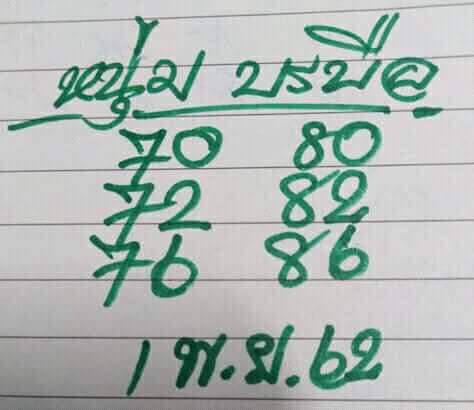 หนุ่ม บรบือ
70 80
72 82
76 86
1 พ.ย.62